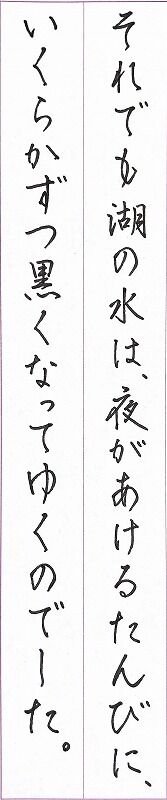 それでも湖の水は、夜があけるたんびに、
いくらかずつ黒くなってゆくのでした。